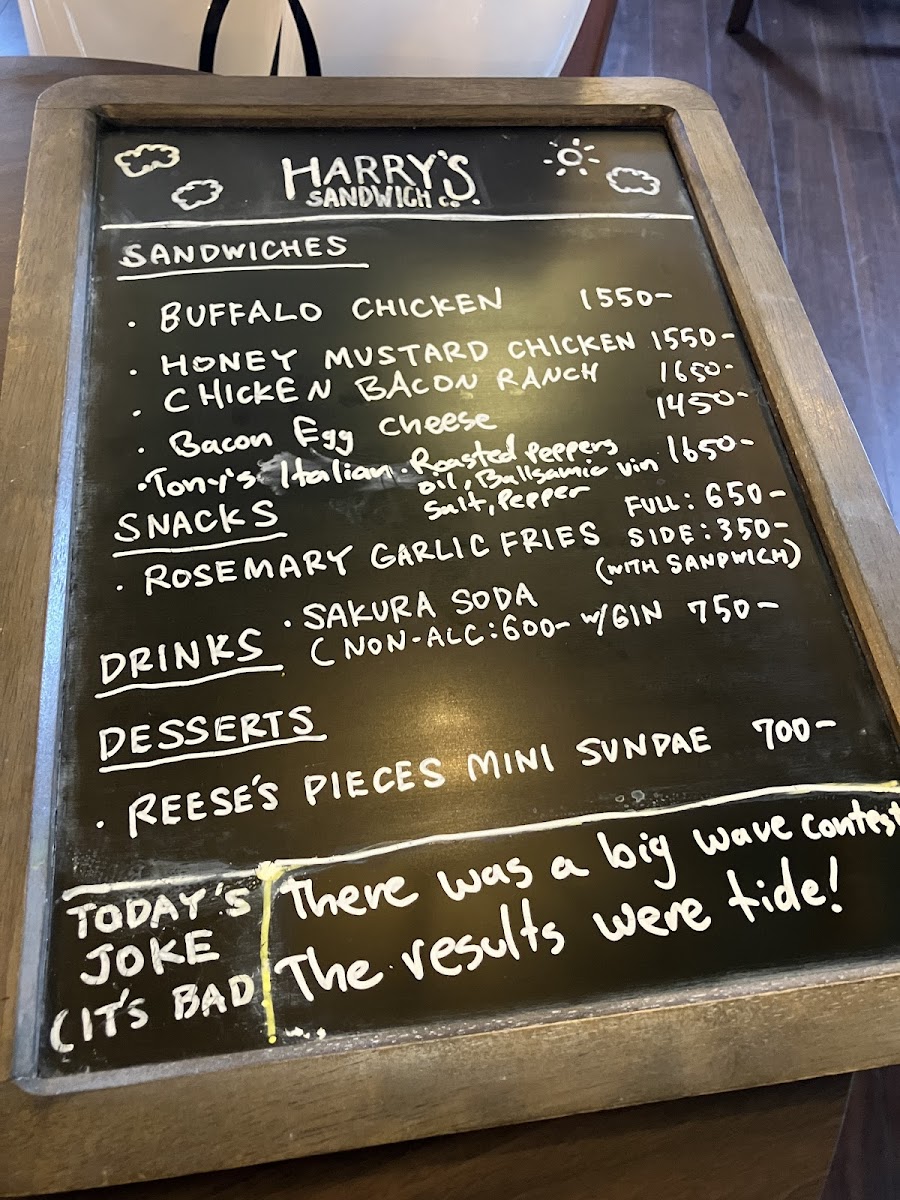 HARRY'S
SANDWICH Co.
SANDWICHES
· BUFFALO CHICKEN 1550-
· HONEY MUSTARD CHICKEN 1550-
· CHICKEN BACON RANCH 1650-
· Bacon Egg Cheese 1450-
· Tony's Italian · Roasted Peppers 1650-
oil, Ballsamic vin
Salt, Pepper
SNACKS
· ROSEMARY GARLIC FRIES FULL: 650-
SIDE: 350-
(WITH SANDWICH)
DRINKS · SAKURA SODA
(NON-ALC: 600- W/GIN 750-
DESSERTS
· REESE'S PIECES MINI SUNDAE 700-
TODAY'S
JOKE
(IT'S BAD
There was a big wave contest
The results were tide!